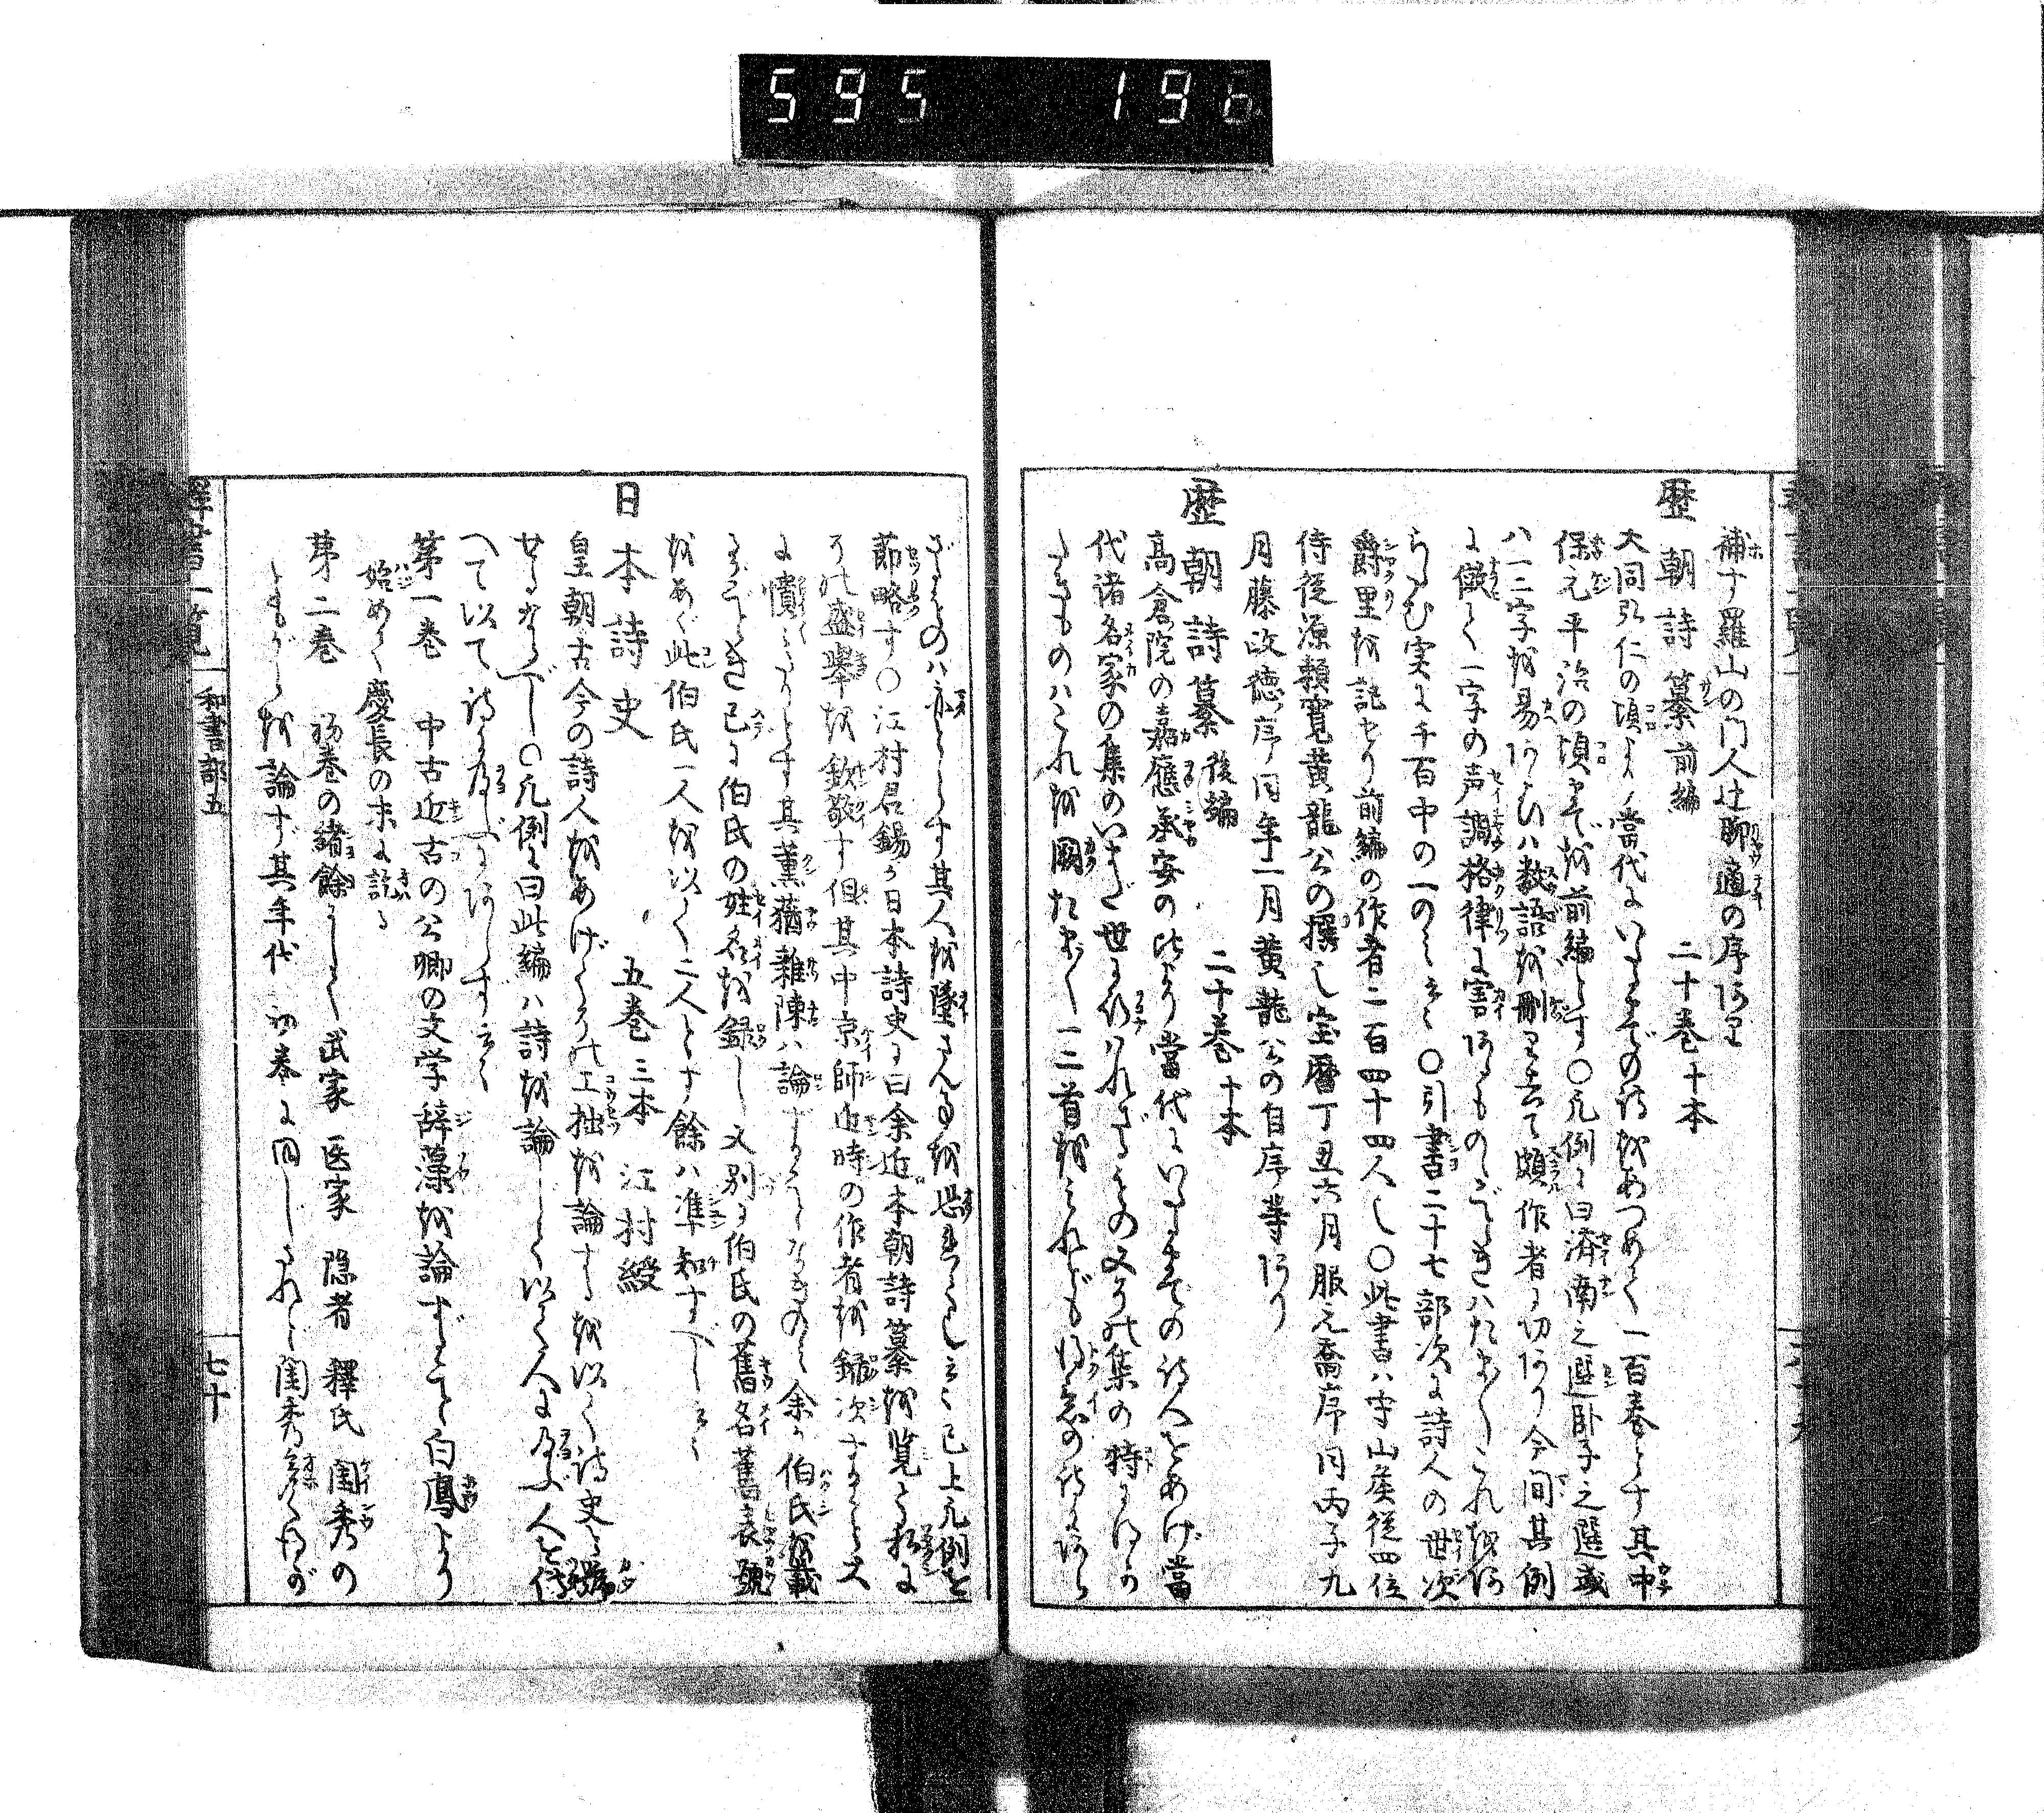 595 196
補す羅山の門人辻聊適の序あり
歴朝詩纂前編 二十巻十本
大同弘仁の頃より當代にいたるまでの詩をあつめて一百巻とす其中
保元平治の頃までを前編とす〇凡例に曰済南之選卧子之選或
ハ一二字を易あるひハ数語を刪り去て頗作者に功あり今間其例
に傚て一字の声調格律に害あるものゝごときハたまたまこれをあ
らたむ実に千百中の一のミ云々〇引書二十七部次に詩人の世次
爵里を記せり前編の作者二百四十四人也〇此書ハ守山侯従四位
侍従源頼寛黄龍公の撰也宝暦丁丑六月服元喬序同丙子九
月藤政徳序同年二月黄龍公の自序等あり
歴朝詩纂後編 二十巻十本
高倉院の嘉應承安の比より當代にいたるまでの詩人をあげ當
代諸名家の集のいまだ世に行ハれざるもの又その集の特に
たるものハこれを闕たまたま一二首をミれども得意の詩にあら
ざるものハ亦とらず其人を墜さん事を恐るゝ也云々已上凡例を
節略す〇江村君錫が日本詩史に曰余近本朝詩纂を覧る拓に
その盛挙を欽敬す但其中京師近時の作者を録次することス
に憒々たりとす其薫蕕雑陳ハ論することなきのミ余が伯氏を載
るがごとき已に伯氏の姓名を録し又別に伯氏の舊名舊表號
をあぐ此伯氏一人を以て二人とす餘ハ準知すべし云々
日本詩史 五巻三本 江村綬
皇朝古今の詩人をあげてその工拙を論ずるを以て詩史と號
せるなるべし〇凡例に曰此編ハ詩を論して以て人に及ぶ人を傳
へて以て詩に及ぶにあらず云々
第一巻 中古近古の公卿の文学辞藻を論ずすべて白鳳より
始めて慶長の末に訖る
第二巻 初巻の緒餘にして武家 医家 隠者 釋氏 閨秀の
ともがらを論ず其年代初巻に同じされど閨秀
解書一覧 和書部五 七十